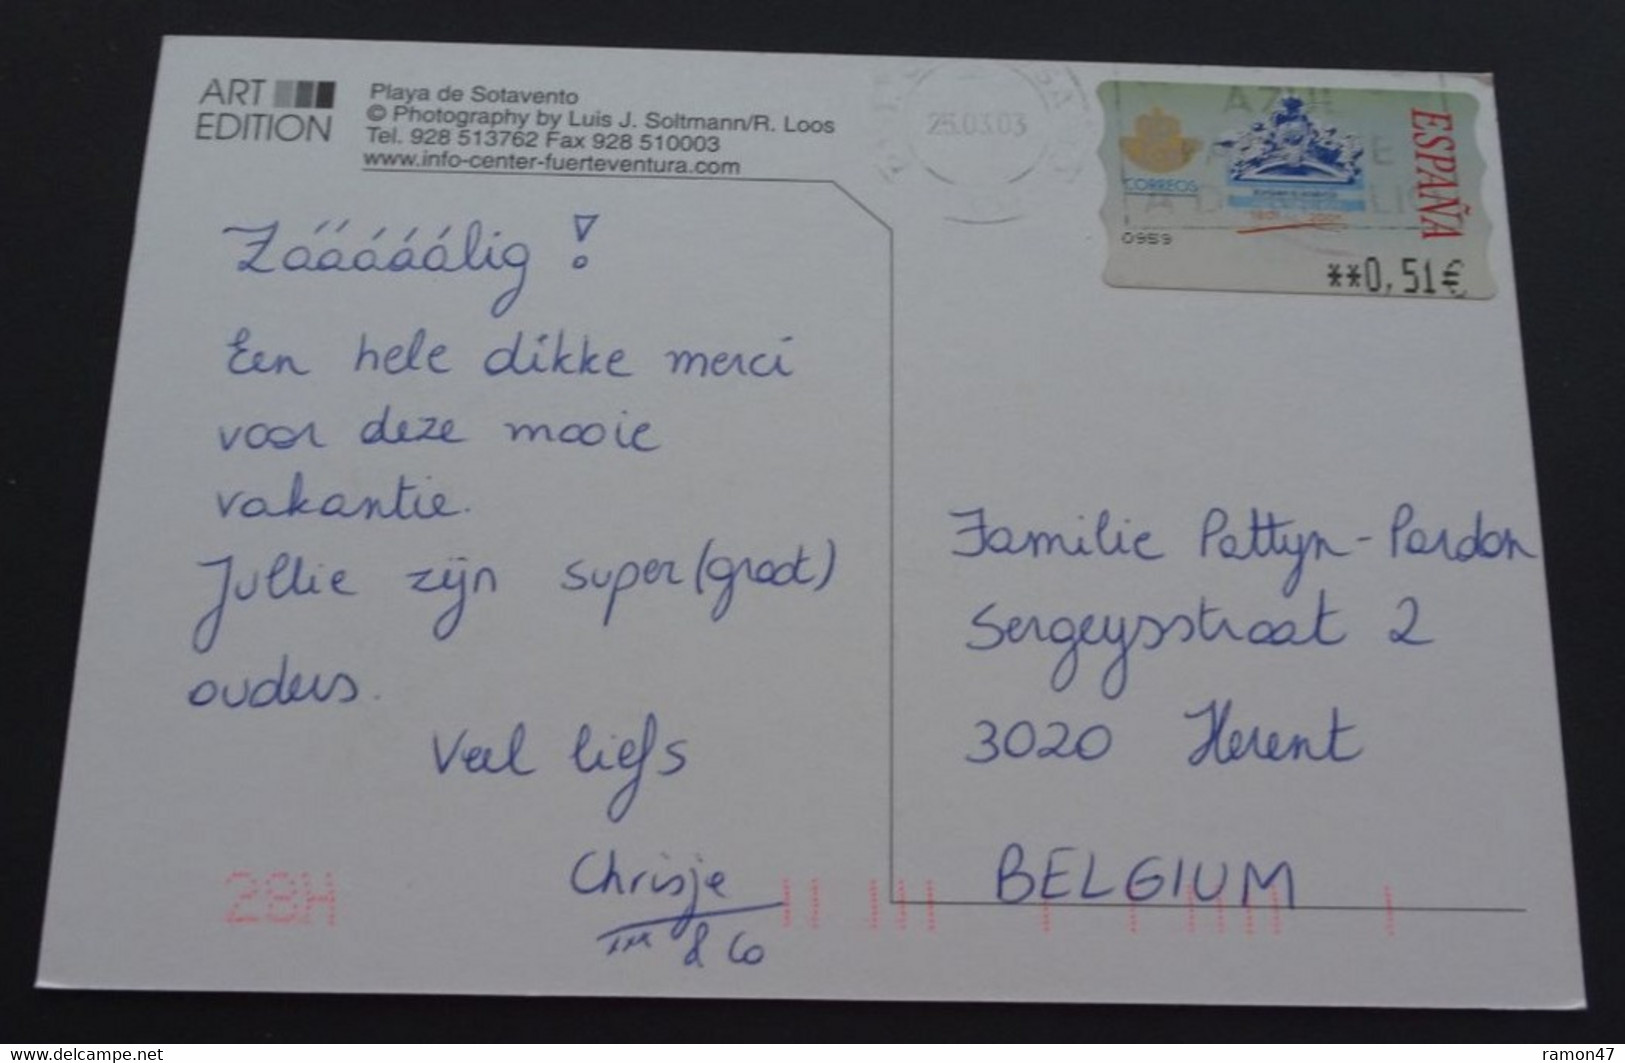 ART
EDITION
Playa de Sotavento
© Photography by Luis J. Soltmann/R. Loos
Tel. 928 513762 Fax 928 510003
www.info-center-fuerteventura.com
Zááááálig!
Een hele dikke merci
voor deze mooie
vakantie.
Jullie zijn super(groot)
ouders.
Veel liefs
Chrisje
xxx & Co
28H
25.03.03
CORREOS
ESPAÑA
0959
**0,51€
Familie Pattyn-Pardon
Sergeysstraat 2
3020 Herent
BELGIUM
https://www.delcampe.net
ramon47